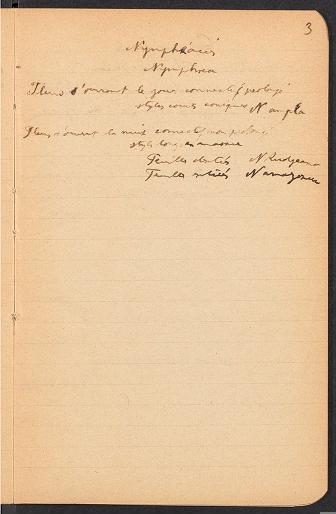 3
Nymphéacées
Nymphaea
Fleurs s'ouvrant le jour connectif prolongé
styles courts coniques N ampla
Fleurs s'ouvrant la nuit connectif non prolongé
styles longs en massue
Feuilles dentées N Rudgeana
Feuilles entières N amazonum